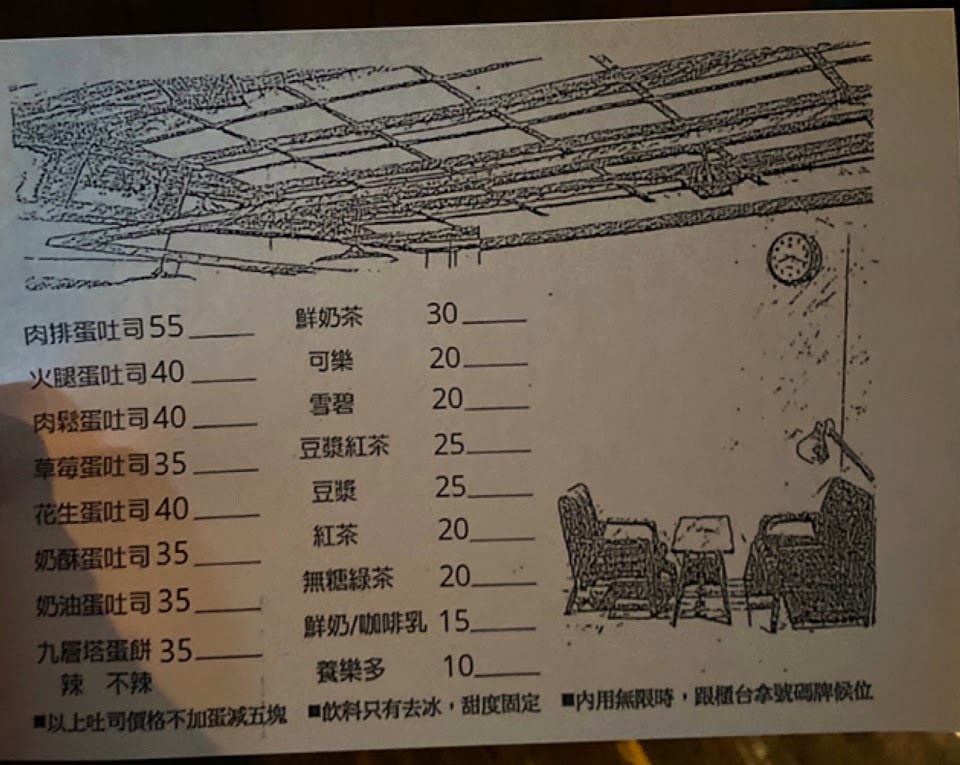 肉排蛋吐司 55
火腿蛋吐司 40
肉鬆蛋吐司 40
草莓蛋吐司 35
花生蛋吐司 40
奶酥蛋吐司 35
奶油蛋吐司 35
九層塔蛋餅 35
辣 不辣
■以上吐司價格不加蛋減五塊
鮮奶茶 30
可樂 20
雪碧 20
豆漿紅茶 25
豆漿 25
紅茶 20
無糖綠茶 20
鮮奶/咖啡乳 15
養樂多 10
■飲料只有去冰，甜度固定
■內用無限時，跟櫃台拿號碼牌候位